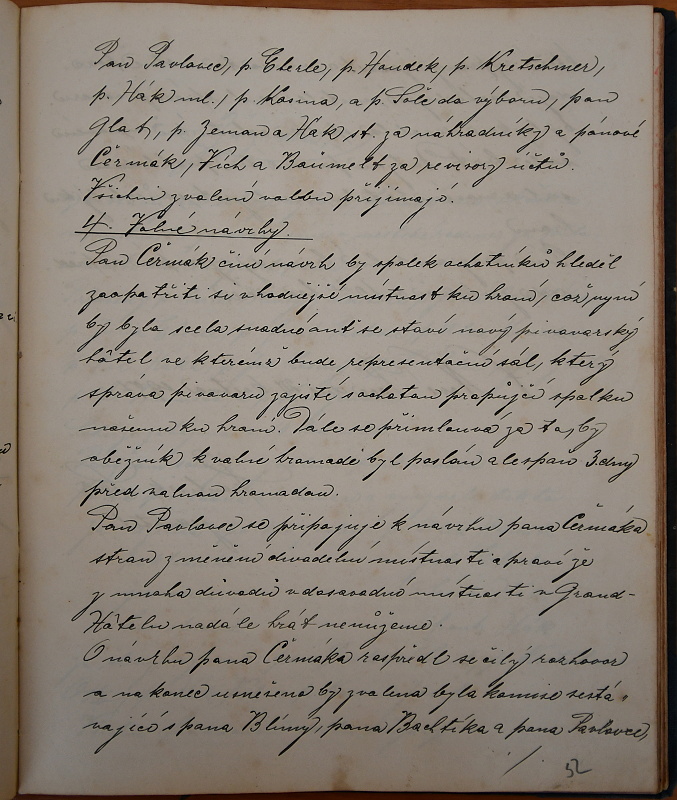 Pan Pavlovec, p. Eberle, p. Houdek, p. Kretschmer,
p. Hák ml., p. Kosina, a p. Šolc do výboru, pan
Glat, p. Zeman a Hák st. za náhradníky a pánové
Čermák, Vích a Baumelt za revisory účtů.
Všichni zvolení volbu přijímají.
4. Volné návrhy.
Pan Čermák činí návrh by spolek ochotníků hleděl
zaopatřiti si vhodnější místnost ku hraní, což nyní
by bylo scela snadné anť se staví nový pivovarský
hôtel ve kterémž bude representační sál, který
správa pivovaru zajisté s ochotou propůjčí spolku
našemu ku hraní. Dále se přimlouvá za to, by
oběžník k valné hromadě byl poslán alespoň 3. dny
před valnou hromadou.
Pan Pavlovec se připojuje k návrhu pana Čermáka
stran změnění divadelní místnosti a praví že
z mnoha důvodů v dosavadní místnosti v Grand-
Hôtelu nadále hrát nemůžeme.
O návrhu pana Čermáka rozpředl se čilý rozhovor
a na konec usneseno by zvolena byla komise sestá-
vající s pana Blímy, pana Bachtíka a pana Pavlovce,
52